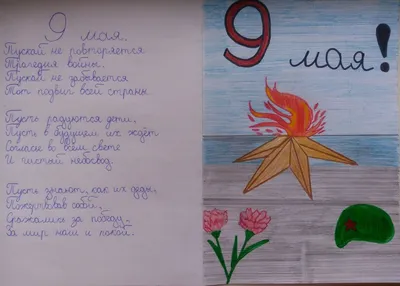 9 мая.
Пускай не повторяется
Трагедия войны.
Пускай не забывается
Тот подвиг всей страны.
Пусть радуются дети,
Пусть в будущем их ждёт
Согласие во всём свете
И чистый небосвод.
Пусть знают, как их деды,
Пожертвовав собой,
Сражались за победу,
За мир наш и покой.
9 мая!